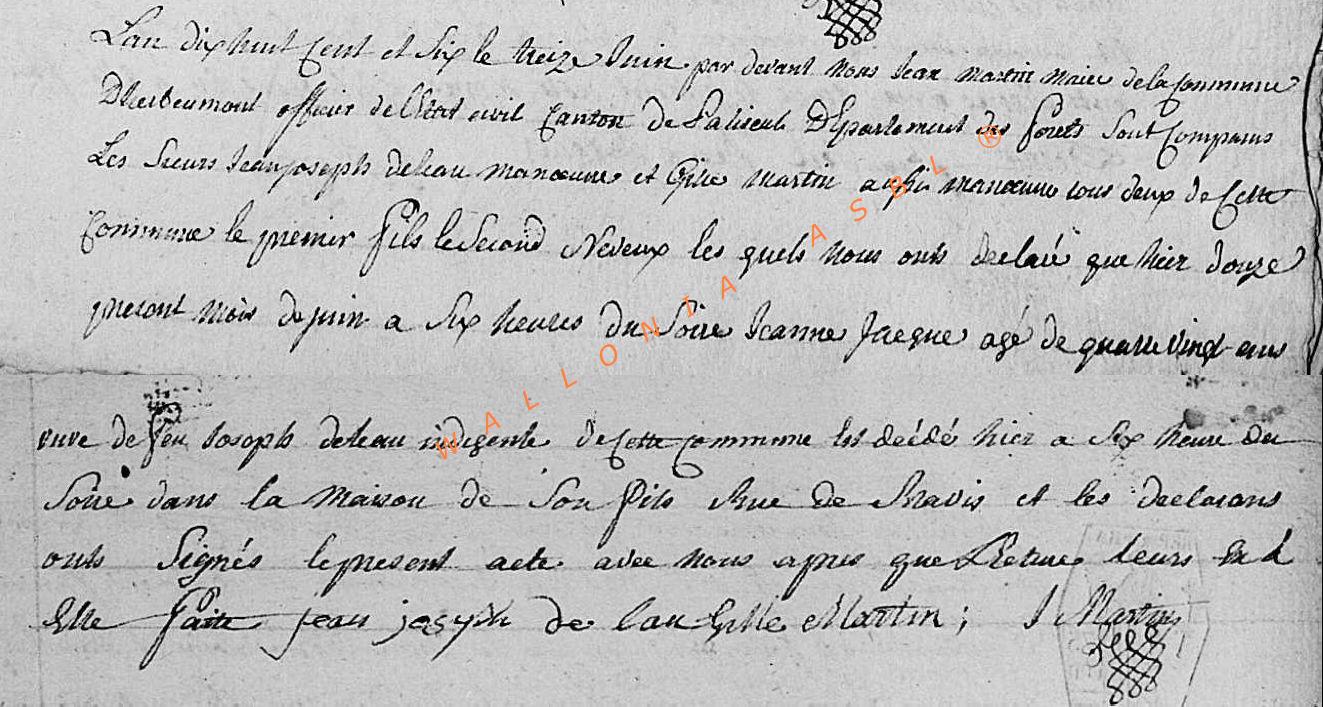 L'an dix huit Cent et Six le treize Juin par devant Nous Jean Martin Maire de la Commune
D'herbeumont officier de l'Etat civil Canton de Paliseul D'Epartement des Forets Sont Comparus
Les Sieurs Jean joseph deleau manoeuvre et Gille Martin aussi manoeuvre tous deux de Cette
Commune le premier Fils le Second Neveux les quels Nous onts declaré que hier douze
present Mois de juin a Six heures du Soire Jeanne Jacque agé de quatre Vingt ans
veuve de feu Joseph deleau indigente de Cette Commune Est decédé hier a Six heure du
Soire dans la Maison de Son fils Rue de et les declarans
onts Signés le present acte avec Nous apres que Lecture leurs En a
Ette Faite jean joseph de lau Gille Martin ; J Martin
WALLONIA ASBL ®